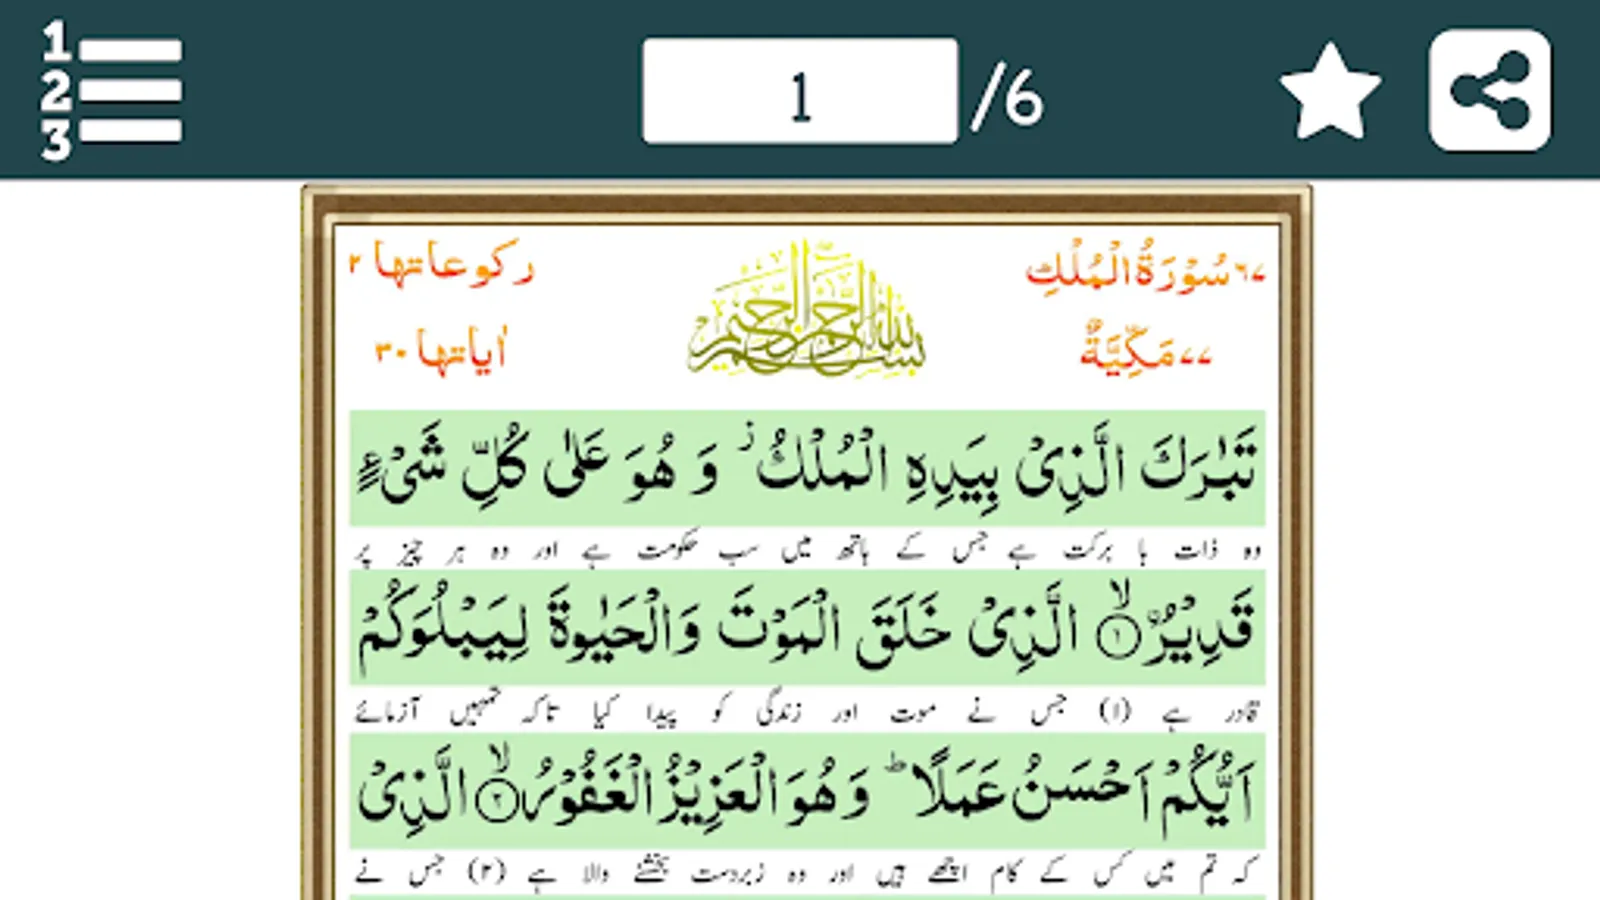 1
2
3
1 /6
٦٧ سُوْرَةُ الْمُلْكِ
رکوعاتها ٢
بسم الله الرحمن الرحيم
٧٧ مَكِّيَّةٌ
اٰیاتها ٣٠
تَبٰرَكَ الَّذِىْ بِيَدِهِ الْمُلْكُ ؗ وَ هُوَ عَلٰى كُلِّ شَىْءٍ
وہ ذات با برکت ہے جس کے ہاتھ میں سب حکومت ہے اور وہ ہر چیز پر
قَدِيْرُۨ ۙ﴿۱﴾ الَّذِىْ خَلَقَ الْمَوْتَ وَالْحَيٰوةَ لِيَبْلُوَكُمْ
قادر ہے (۱) جس نے موت اور زندگی کو پیدا کیا تاکہ تمہیں آزمائے
اَيُّكُمْ اَحْسَنُ عَمَلًا ؕ وَ هُوَ الْعَزِيْزُ الْغَفُوْرُ ۙ﴿۲﴾ الَّذِىْ
کہ تم میں کس کے کام اچھے ہیں اور وہ زبردست بخشنے والا ہے (۲) جس نے